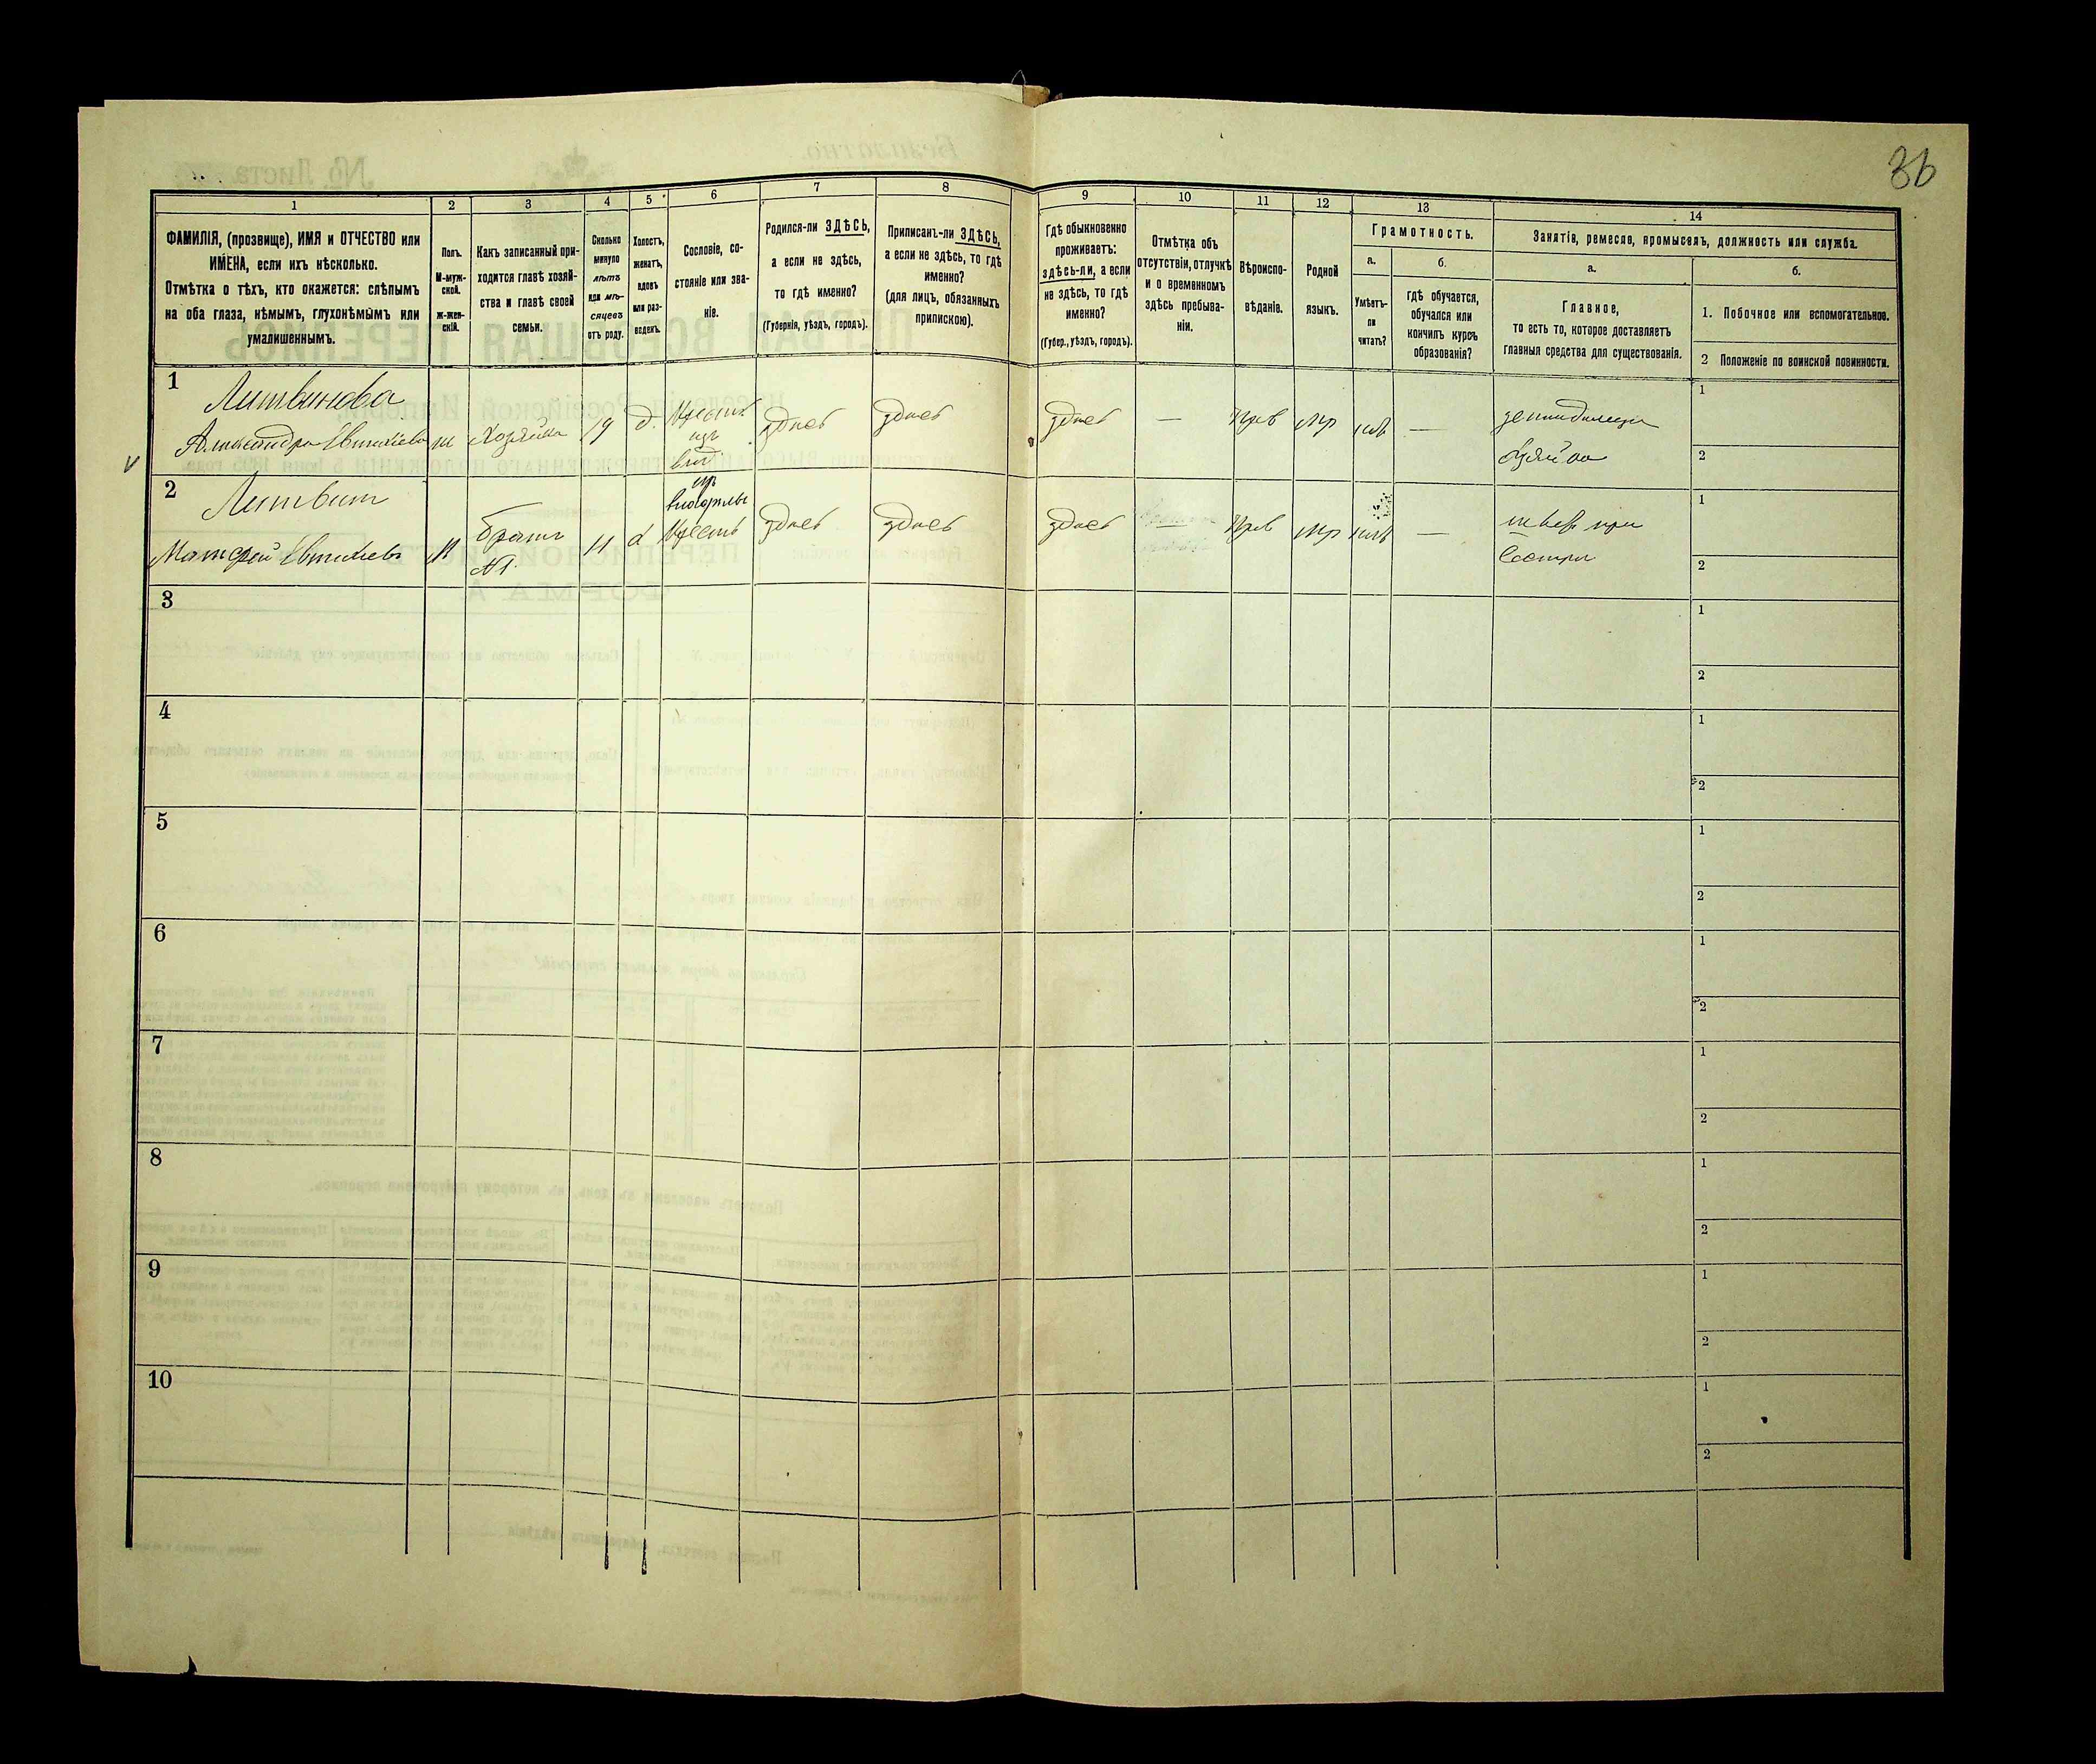 36
1
2
3
4
5
6
7
8
9
10
11
12
13
14
ФАМИЛІЯ, (прозвище), ИМЯ и ОТЧЕСТВО или
ИМЕНА, если ихъ нѣсколько.
Отмѣтка о тѣхъ, кто окажется: слѣпымъ
на оба глаза, нѣмымъ, глухонѣмымъ или
умалишеннымъ.
Полъ.
М-муж-
ской.
ж-жен-
скій.
Какъ записанный при-
ходится главѣ хозяй-
ства и главѣ своей
семьи.
Сколько
минуло
лѣтъ
или мѣ-
сяцевъ
отъ роду.
Холостъ,
женатъ,
вдовъ
или раз-
веденъ.
Сословіе, со-
стояніе или зва-
ніе.
Родился-ли ЗДѢСЬ,
а если не здѣсь,
то гдѣ именно?
(Губернія, уѣздъ, городъ).
Приписанъ-ли ЗДѢСЬ,
а если не здѣсь, то гдѣ
именно?
(для лицъ, обязанныхъ
припискою).
Гдѣ обыкновенно
проживаетъ:
здѣсь-ли, а если
не здѣсь, то гдѣ
именно?
(Губер., уѣздъ, городъ).
Отмѣтка объ
отсутствіи, отлучкѣ
и о временномъ
здѣсь пребыва-
ніи.
Вѣроиспо-
вѣданіе.
Родной
языкъ.
Грамотность.
а.
Умѣетъ-
ли
читать?
б.
Гдѣ обучается,
обучался или
кончилъ курсъ
образованія?
Занятіе, ремесло, промыселъ, должность или служба.
а.
Главное,
то есть то, которое доставляетъ
главныя средства для существованія.
б.
1. Побочное или вспомогательное.
2 Положеніе по воинской повинности.
1
Литвинова
Александра Евтихіева
ж
Хозяйка
19
д.
Крестъ
изъ
здѣсь
здѣсь
здѣсь
—
Прав
мр
нѣтъ
—
хозяйка
1
2
2
Литвин
Матфей Евтихіевъ
М
братъ
№1.
11
х
Крестъ
здѣсь
здѣсь
здѣсь
—
Прав
мр
нѣтъ
—
при
Сестре
1
2
3
1
2
4
1
2
5
1
2
6
1
2
7
1
2
8
1
2
9
1
2
10
1
2